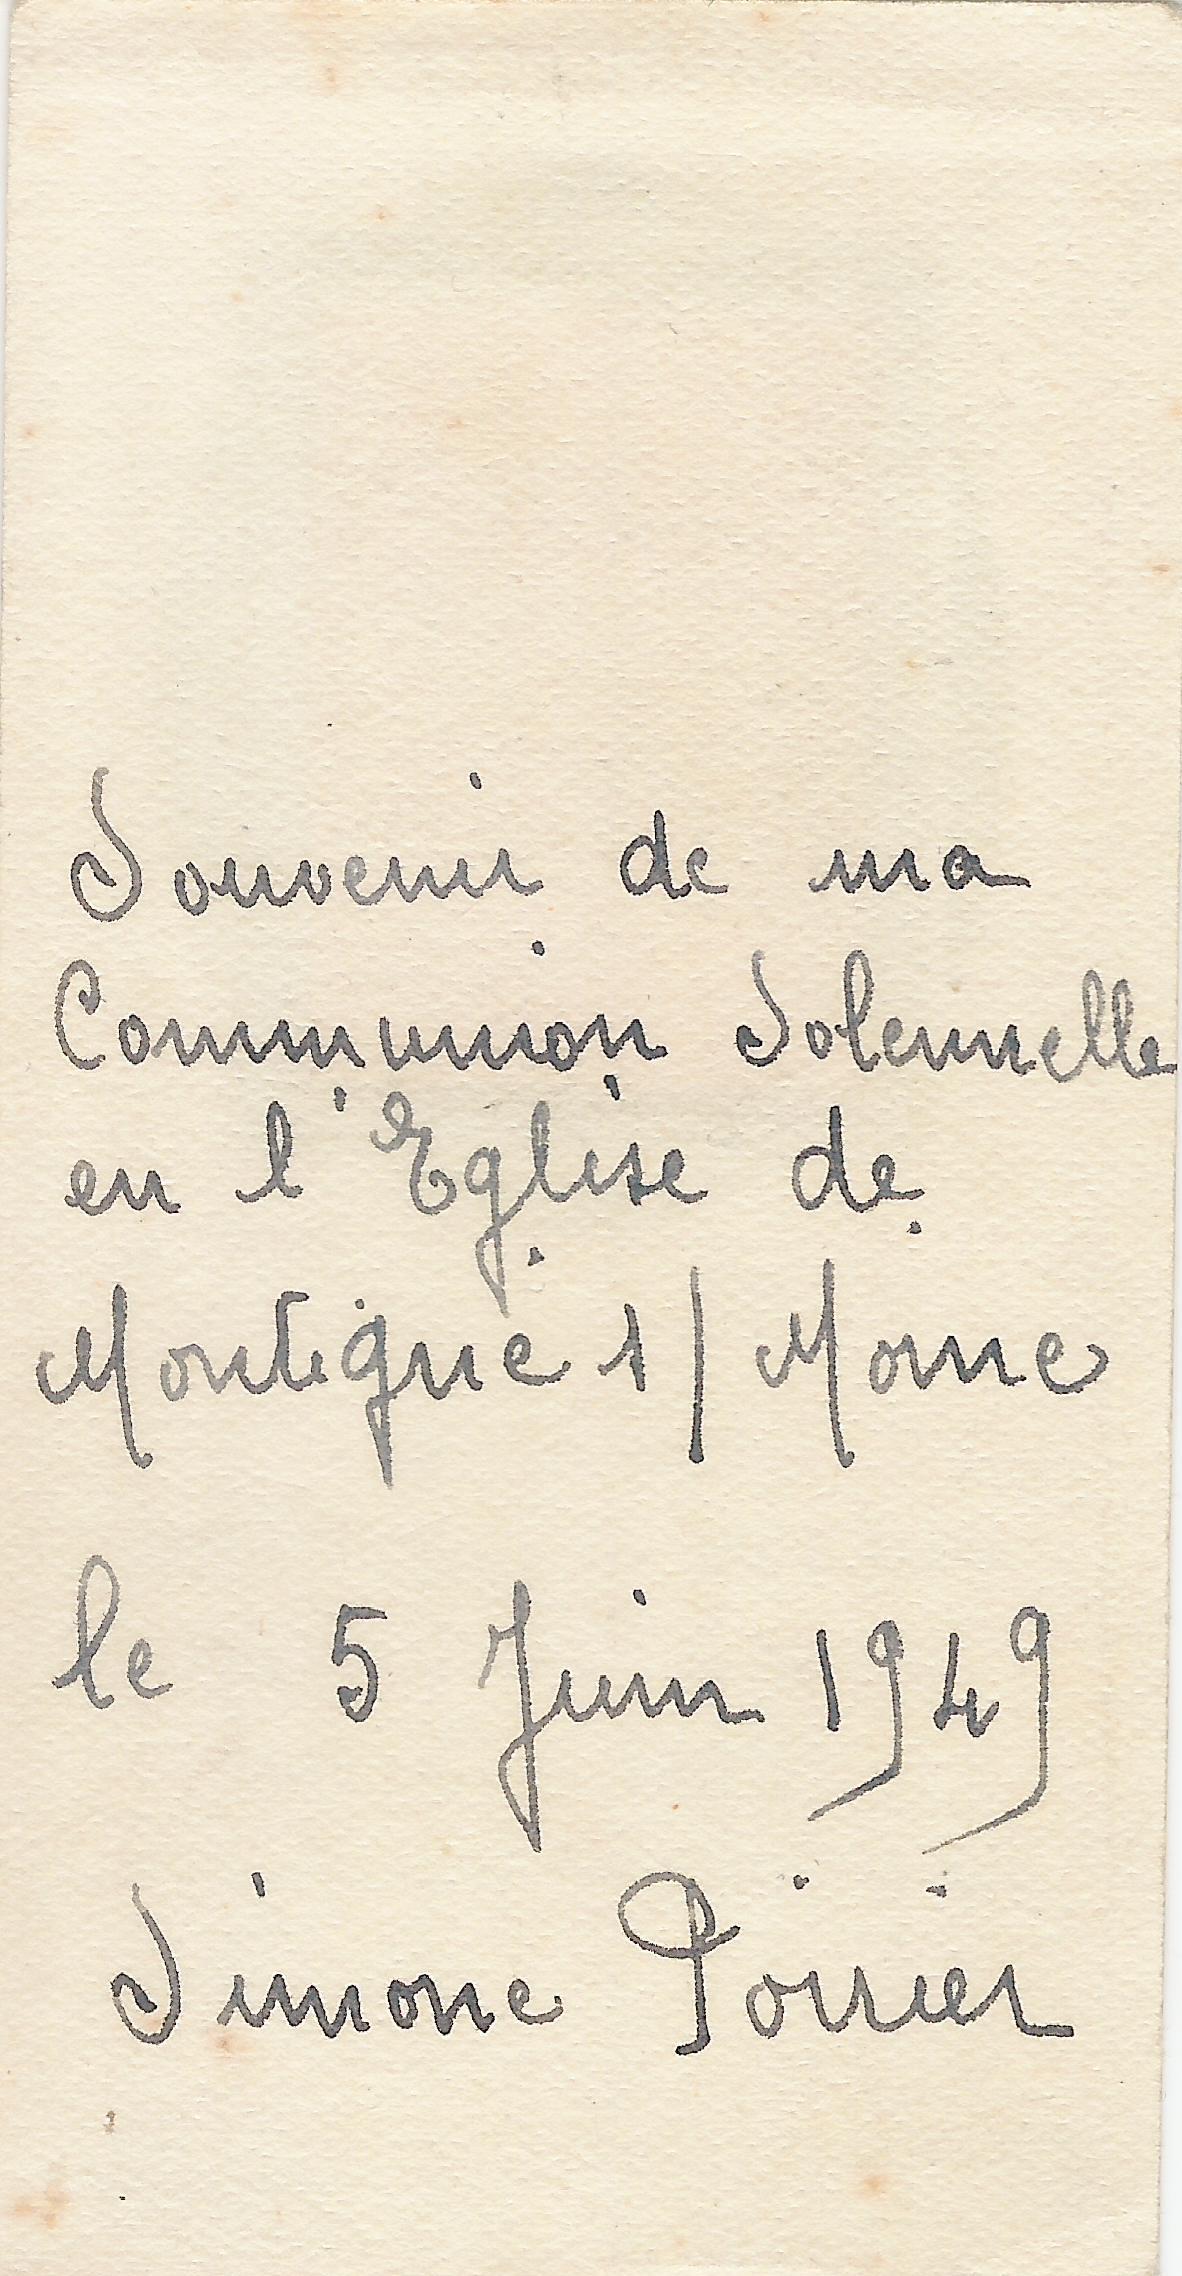 Souvenir de ma
Communion Solennelle
en l'Eglise de
Montigné s/ Moine
le 5 Juin 1949
Simone Poirier